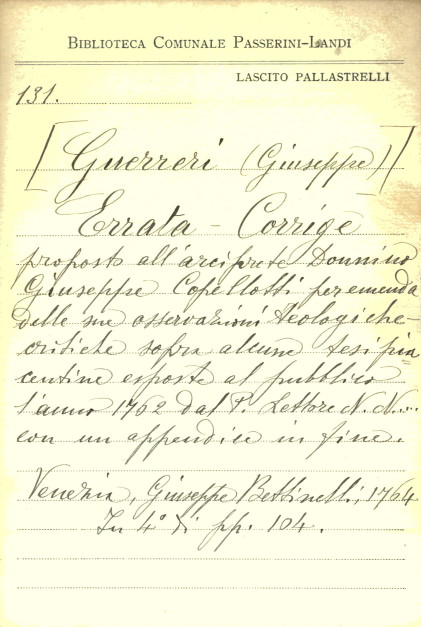 BIBLIOTECA COMUNALE PASSERINI-LANDI
LASCITO PALLASTRELLI
131.
[Guerreri (Giuseppe)]
Errata - Corrige
proposto all'arciprete Donnino
Giuseppe Copellotti per emenda
delle sue osservazioni teologiche-
critiche sopra alcune tesi pia=
centine esposte al pubblico
l'anno 1762 dal P. Lettore N. N....
con un appendice in fine.
Venezia, Giuseppe Bettinelli, 1764
In 4° di pp. 104.